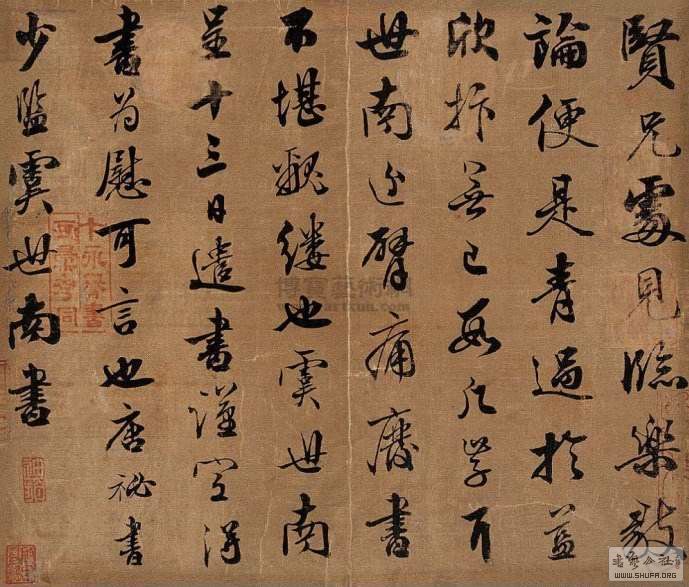 賢兄處見臨樂毅
論便是青過於藍
欣抃無已數凡學耳
世南近臂痛廢書
不堪覶縷也虞世南
呈十三日遣書謹空得
書為慰可言也唐祕書
少監虞世南書
博寶藝術網
artxun.com
書法公社
WWW.SHUFA.ORG